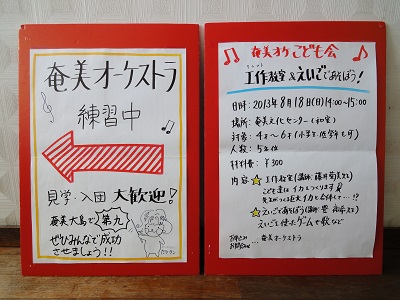 奄美オーケストラ
練習中
見学・入団 大歓迎!
奄美大島で第九
ぜひみんなで成功
させましょう!!
奄美オケこども会
工作教室&えいごであそぼう!
日時:2013年8月18日(日)14:00~15:00
場所:奄美文化センター(和室)
対象:4才~6才(小学生低学年も可)
人数:5名位
材料費:¥300
内容 ☆工作教室(講師:藤井
こども達はイカをつくります
☆えいごであそぼう(講師:
えいごを使ったゲームや歌など
奄美オーケストラ